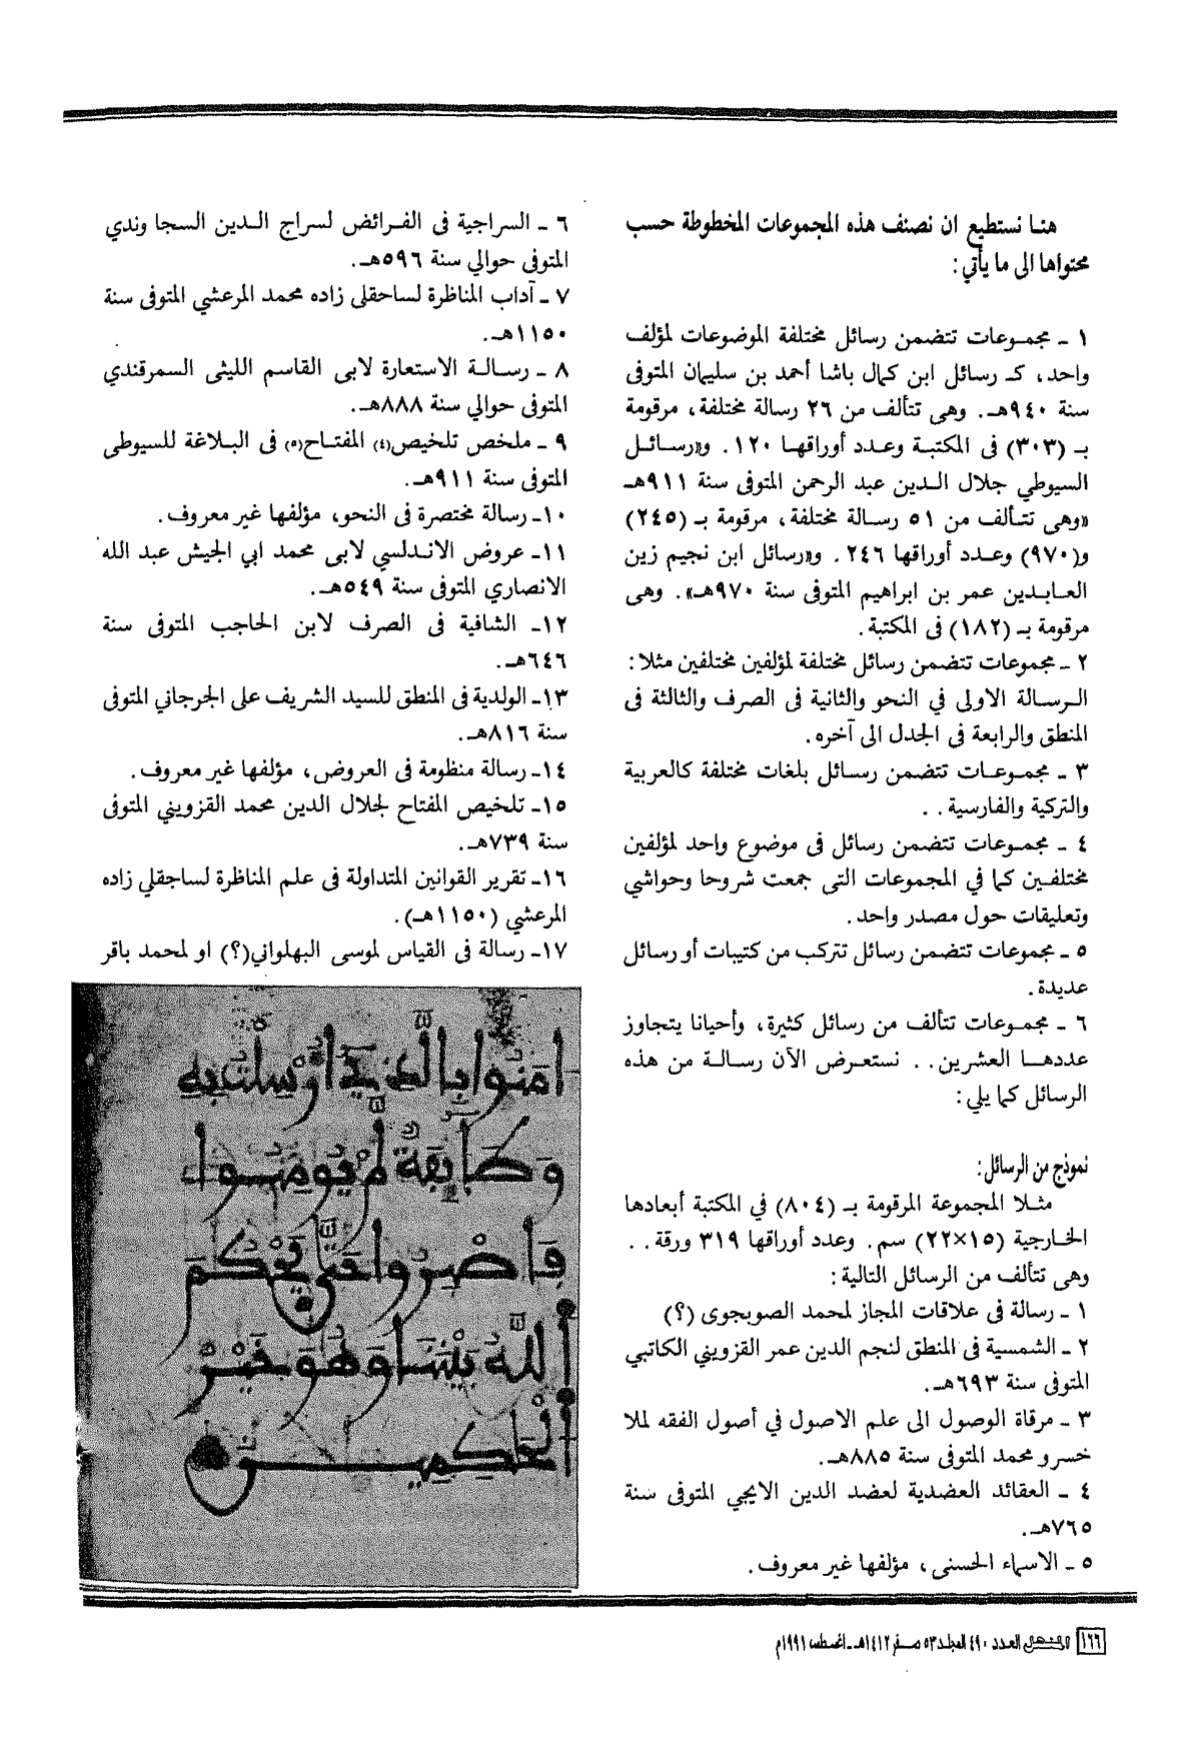 هنا نستطيع ان نصنف هذه المجموعات المخطوطة حسب
محتواها الى ما يأتي:
١ ـ مجموعات تتضمن رسائل مختلفة الموضوعات لمؤلف
واحد، كـ رسائل ابن كمال باشا أحمد بن سليمان المتوفى
سنة ٩٤٠هـ. وهى تتألف من ٢٦ رسالة مختلفة، مرقومة
بـ (٣٠٣) فى المكتبة وعدد أوراقها ١٢٠. و«رسائل
السيوطي جلال الدين عبد الرحمن المتوفى سنة ٩١١هـ
«وهى تتألف من ٥١ رسالة مختلفة، مرقومة بـ (٢٤٥)
و(٩٧٠) وعدد أوراقها ٢٤٦. و«رسائل ابن نجيم زين
العابدين عمر بن ابراهيم المتوفى سنة ٩٧٠هـ». وهى
مرقومة بـ (١٨٢) فى المكتبة.
٢ ـ مجموعات تتضمن رسائل مختلفة لمؤلفين مختلفين مثلا:
الرسالة الاولى في النحو والثانية فى الصرف والثالثة فى
المنطق والرابعة فى الجدل الى آخره.
٣ ـ مجموعات تتضمن رسائل بلغات مختلفة كالعربية
والتركية والفارسية . .
٤ ـ مجموعات تتضمن رسائل فى موضوع واحد لمؤلفين
مختلفين كما في المجموعات التى جمعت شروحا وحواشي
وتعليقات حول مصدر واحد.
٥ ـ مجموعات تتضمن رسائل تتركب من كتيبات أو رسائل
عديدة.
٦ ـ مجموعات تتألف من رسائل كثيرة، وأحيانا يتجاوز
عددها العشرين. . نستعرض الآن رسالة من هذه
الرسائل كما يلي:
نموذج من الرسائل:
مثلا المجموعة المرقومة بـ (٨٠٤) في المكتبة أبعادها
الخارجية (١٥×٢٢) سم. وعدد أوراقها ٣١٩ ورقة . .
وهى تتألف من الرسائل التالية:
١ ـ رسالة فى علاقات المجاز لمحمد الصوبجوى (؟)
٢ ـ الشمسية فى المنطق لنجم الدين عمر القزويني الكاتبي
المتوفى سنة ٦٩٣هـ.
٣ ـ مرقاة الوصول الى علم الاصول في أصول الفقه لملا
خسرو محمد المتوفى سنة ٨٨٥هـ.
٤ ـ العقائد العضدية لعضد الدين الايجي المتوفى سنة
٧٦٥هـ.
٥ ـ الاسماء الحسنى، مؤلفها غير معروف.
٦ ـ السراجية فى الفرائض لسراج الدين السجا وندي
المتوفى حوالي سنة ٥٩٦هـ.
٧ ـ آداب المناظرة لساحقلى زاده محمد المرعشي المتوفى سنة
١١٥٠هـ.
٨ ـ رسالة الاستعارة لابى القاسم الليثى السمرقندي
المتوفى حوالي سنة ٨٨٨هـ.
٩ ـ ملخص تلخيص(٤) المفتاح(٥) فى البلاغة للسيوطى
المتوفى سنة ٩١١هـ.
١٠ـ رسالة مختصرة فى النحو، مؤلفها غير معروف.
١١ـ عروض الاندلسي لابى محمد ابي الجيش عبد الله
الانصاري المتوفى سنة ٥٤٩هـ.
١٢ـ الشافية فى الصرف لابن الحاجب المتوفى سنة
٦٤٦هـ.
١٣ـ الولدية فى المنطق للسيد الشريف على الجرجاني المتوفى
سنة ٨١٦هـ.
١٤ـ رسالة منظومة فى العروض، مؤلفها غير معروف.
١٥ـ تلخيص المفتاح لجلال الدين محمد القزويني المتوفى
سنة ٧٣٩هـ.
١٦ـ تقرير القوانين المتداولة فى علم المناظرة لساجقلي زاده
المرعشي (١١٥٠هـ).
١٧ـ رسالة فى القياس لموسى البهلواني(؟) او لمحمد باقر
امنوا بالذي أرسلت به
وطايفة لم يومنوا
فاصبروا حتى يحكم
الله بيننا وهو خير
الحكمين
١٦٦ المنهل العدد ٤٩٠ المجلد ٥٣ صفر ١٤١٢هـ ـ اغسطس ١٩٩١م